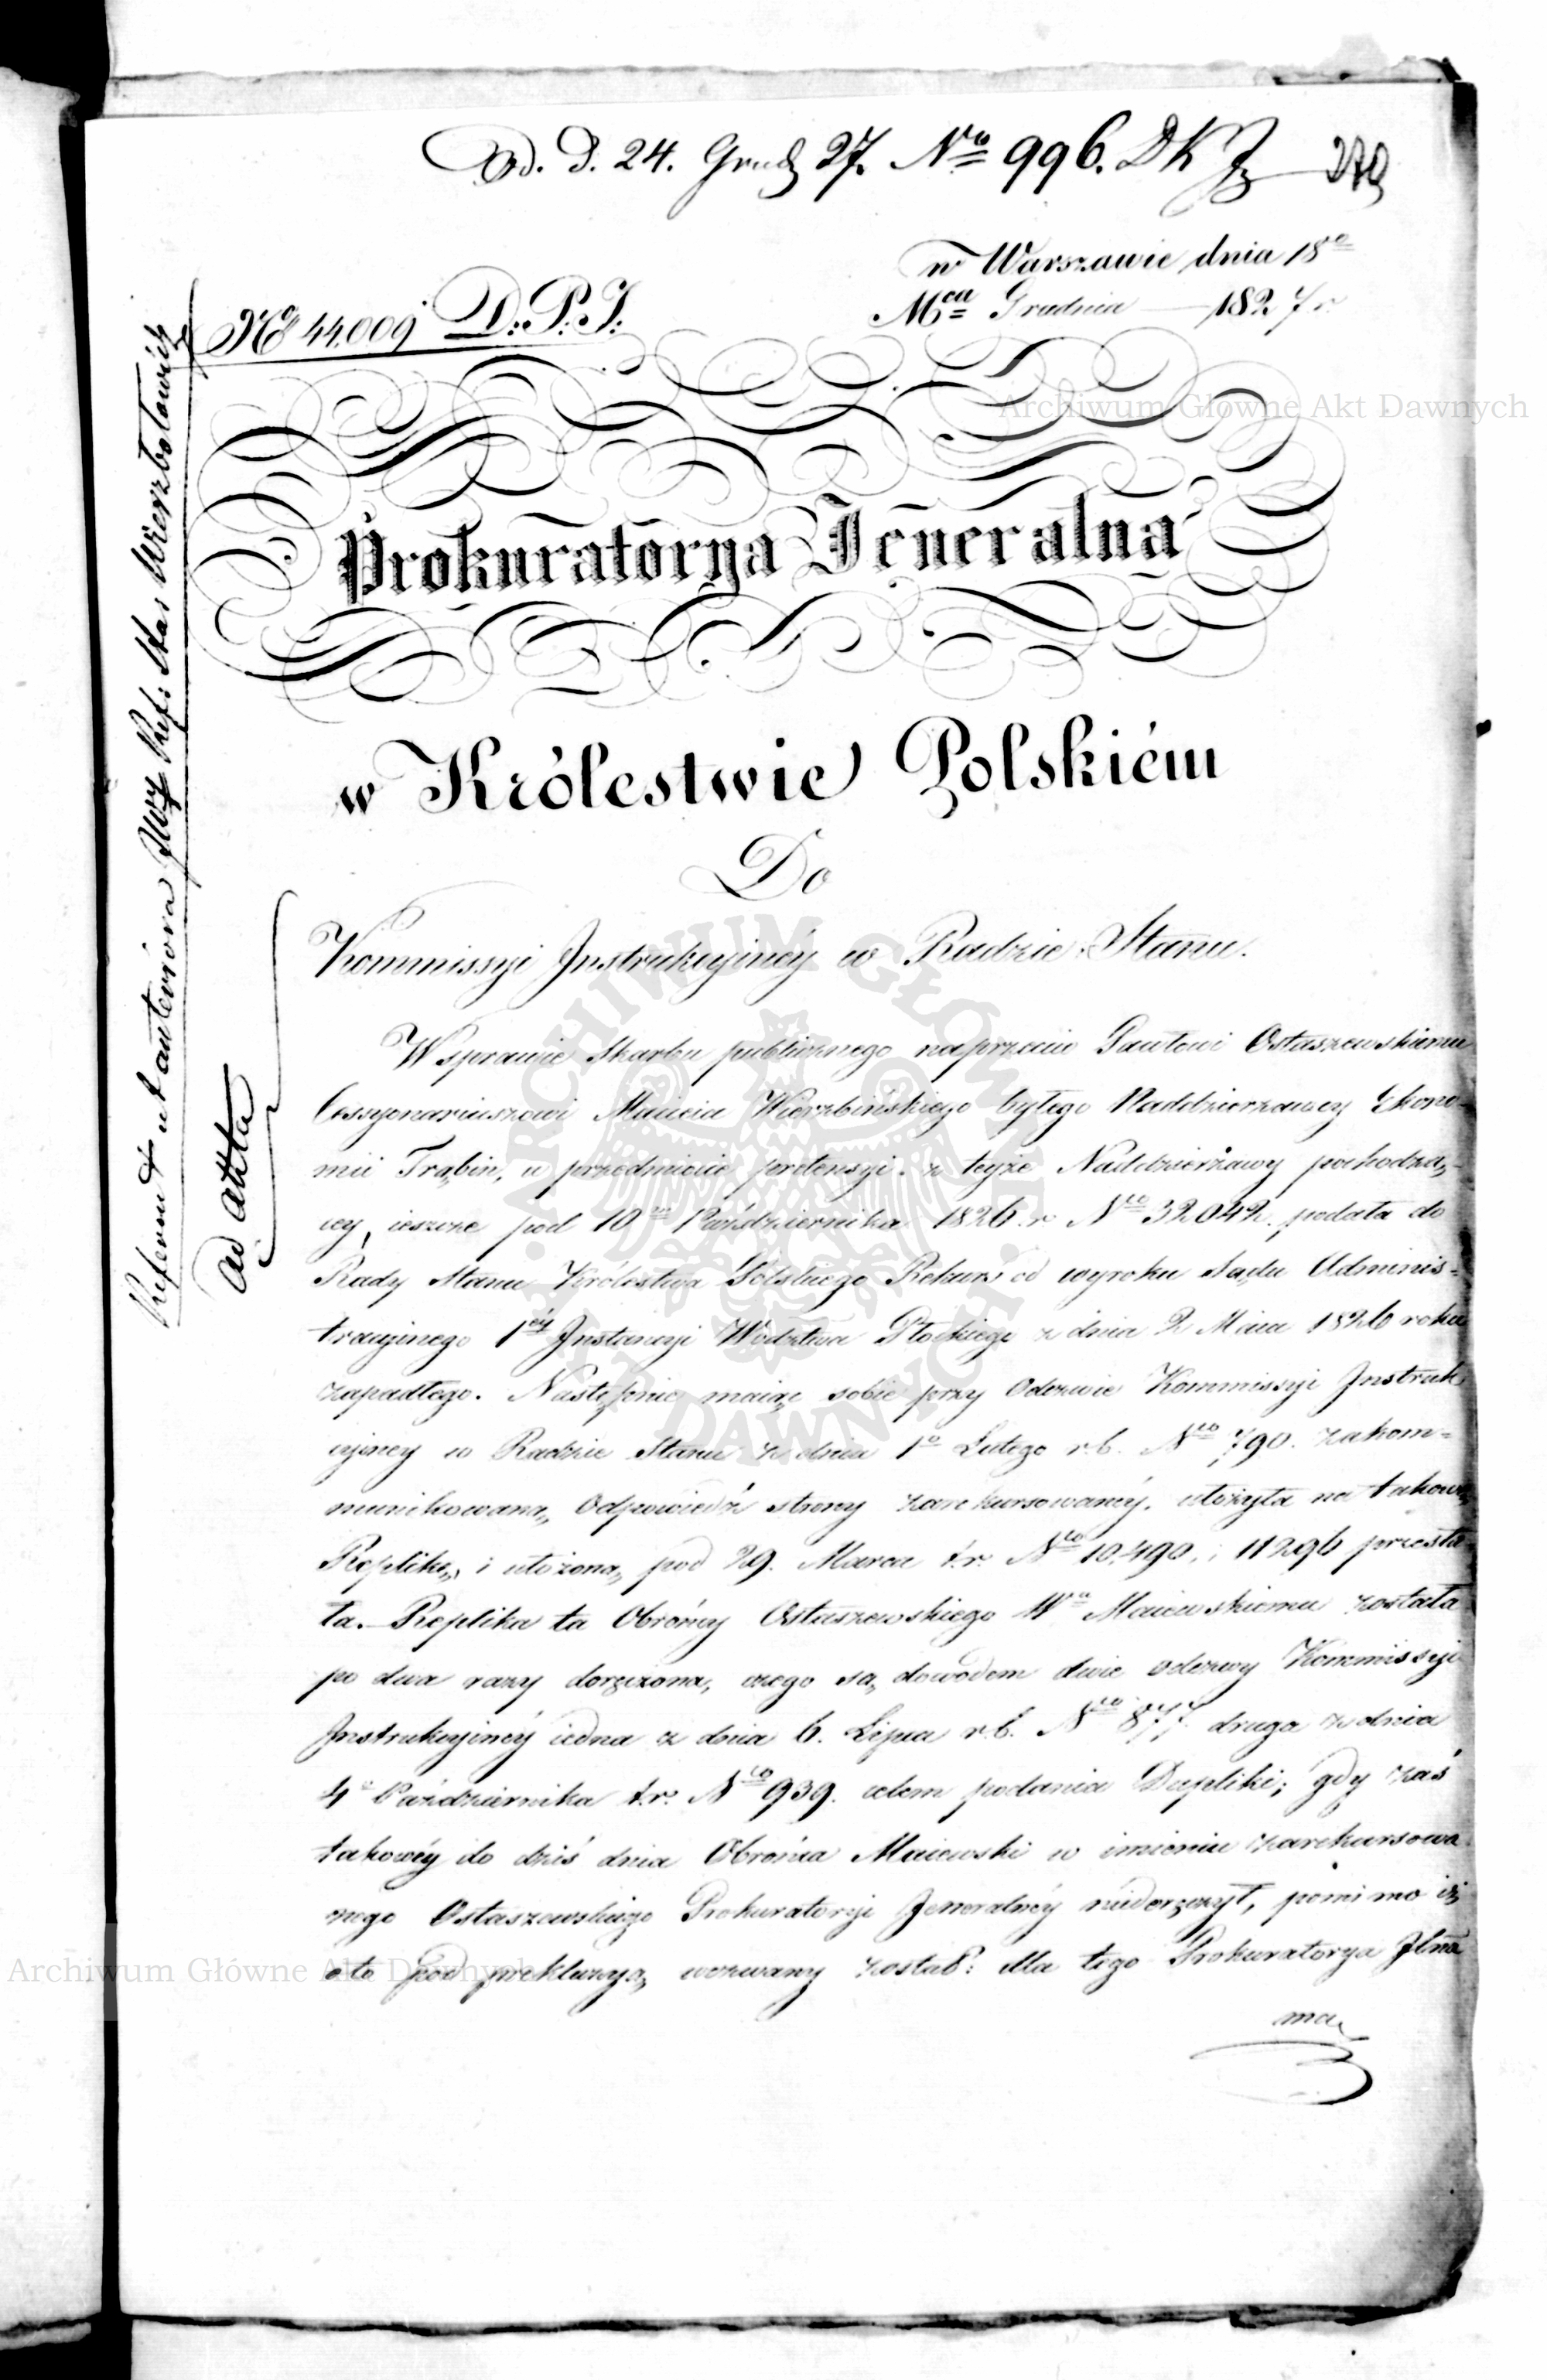 Od. d. 24. Grud 27. No 996. DKJ
279
w Warszawie dnia 18o
Mca Grudnia — 1827 r.
No 44,009 D: P: J:
Prokuratorya Jeneralna
w Królestwie Polskiém
Do
Kommissyi Instrukcyinéy w Radzie Stanu.
W sprawie Skarbu publicznego naprzeciw Gawłowi Ostaszewskiemu
Cessyonariuszowi Macieia Wierzbińskiego byłego Naddzierzawcy Ekono-
mii Trąbin, w przedmiocie pretensyi z teyże Naddzierżawy pochodzą-
cy, ieszcze pod 10m Października 1826 r. Nro 32042. podała do
Rady Stanu Królestwa Polskiego Rekurs od wyroku Sądu Adminis-
tracyinego 1éy Instancyi Wodztwa Płockiego z dnia 2 Maia 1826 roku
zapadłego. Następnie maiąc sobie przy Odezwie Kommissyi Instruk
cyiney w Radzie Stanu z dnia 1o Lutego r.b. Nro 790. zakom=
munikowaną Odpowiedź strony zarekursowanéy, ułożyła na takową
Replikę, i ułożoną pod 29. Marca t.r. Nro 10,490, i 11296 przesła
ła. Replika ta Obrońcy Ostaszewskiego Wu Maiewskiemu została
po dwa razy doręczona, czego są dowodem dwie odezwy Kommissyi
Instrukcyinéy iedna z dnia 6. Lipca r.b. Nro 877. druga z dnia
4o Października t.r. Nro 939. celem podania Dupliki; gdy zaś
takowéy do dziś dnia Obrońca Maiewski w imieniu zarekursowa
nego Ostaszewskiego Prokuratoryi Jeneralnéy niedoręczył, pomimo iż
o to pod prekluzyą wezwany został: dla tego Prokuratorya Jlna
ma
Referent ut anteriora Ref: Sta: Wierzbołowicz
ad acta
Archiwum Główne Akt Dawnych
Archiwum Główne Akt Dawnych
ARCHIWUM GŁÓWNE AKT DAWNYCH